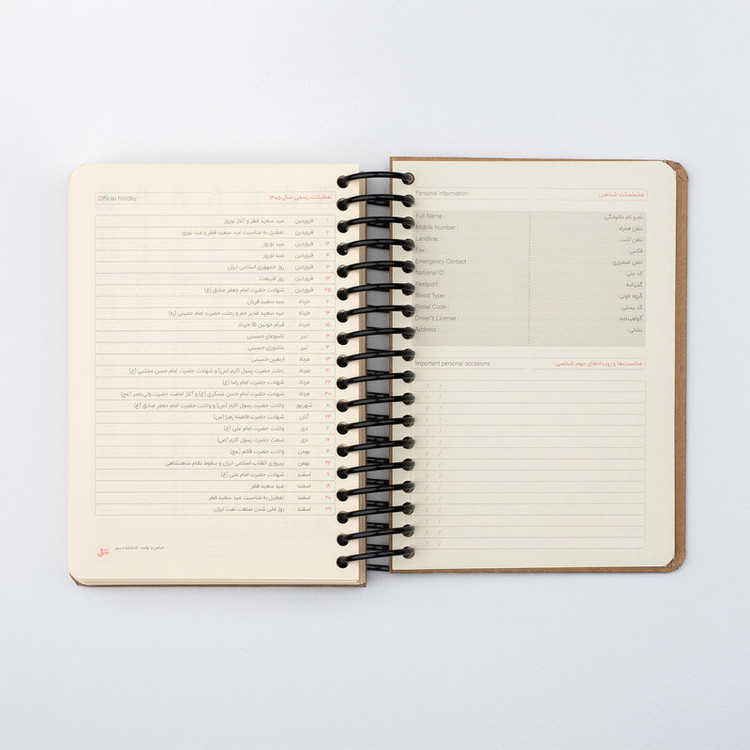 Official holiday تعطیلات رسمی سال ۱۴۰۵
۱ فروردین عید سعید فطر و آغاز نوروز
۲ فروردین تعطیل به مناسبت عید سعید فطر و عید نوروز
۳ فروردین عید نوروز
۴ فروردین عید نوروز
۱۲ فروردین روز جمهوری اسلامی ایران
۱۳ فروردین روز طبیعت
۲۵ فروردین شهادت حضرت امام جعفر صادق (ع)
۶ خرداد عید سعید قربان
۱۴ خرداد عید سعید غدیر خم و رحلت حضرت امام خمینی (ره)
۱۵ خرداد قیام خونین ۱۵ خرداد
۳ تیر تاسوعای حسینی
۴ تیر عاشورای حسینی
۱۳ مرداد اربعین حسینی
۲۱ مرداد رحلت حضرت رسول اکرم (ص) و شهادت حضرت امام حسن مجتبی (ع)
۲۲ مرداد شهادت حضرت امام رضا (ع)
۳۰ مرداد شهادت حضرت امام حسن عسکری (ع) و آغاز امامت حضرت ولی‌عصر (عج)
۸ شهریور ولادت حضرت رسول اکرم (ص) و ولادت حضرت امام جعفر صادق (ع)
۲۳ آبان شهادت حضرت فاطمه زهرا (س)
۲ دی ولادت حضرت امام علی (ع)
۱۶ دی مبعث حضرت رسول اکرم (ص)
۴ بهمن ولادت حضرت قائم (عج)
۲۲ بهمن پیروزی انقلاب اسلامی ایران و سقوط نظام شاهنشاهی
۹ اسفند شهادت حضرت امام علی (ع)
۱۹ اسفند عید سعید فطر
۲۰ اسفند تعطیل به مناسبت عید سعید فطر
۲۹ اسفند روز ملی شدن صنعت نفت ایران
طراحی و تولید: انتشارات
Personal information مشخصات شخصی
Full Name : نام و نام خانوادگی:
Mobile Number : تلفن همراه:
Landline : تلفن ثابت:
Fax : فاکس:
Emergency Contact : تلفن اضطراری:
National ID : کد ملی:
Passport : گذرنامه:
Blood Type : گروه خونی:
Postal Code : کد پستی:
Driver's License : گواهینامه:
Address : نشانی:
Important personal occasions مناسبت‌ها و رویدادهای مهم شخصی
/ /
/ /
/ /
/ /
/ /
/ /
/ /
/ /
/ /
/ /
/ /
/ /
/ /
/ /